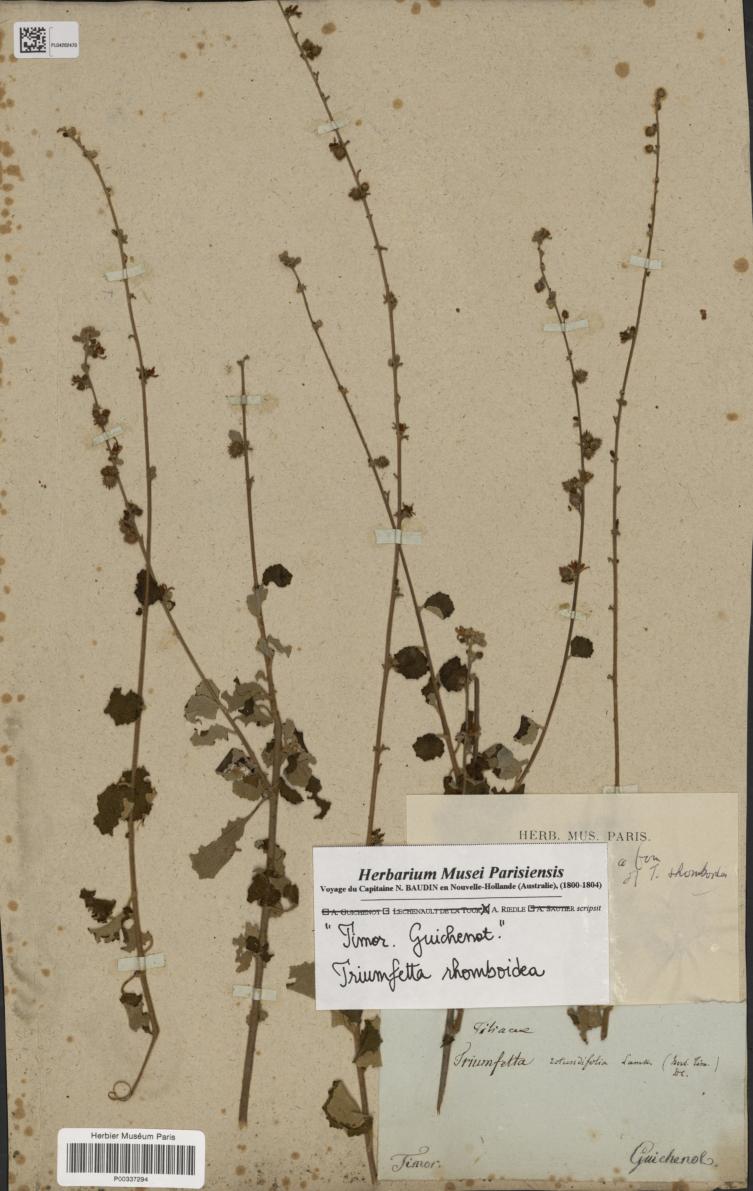 PLG4202470
HERB. MUS. PARIS.
a form
of T. rhomboidea
Herbarium Musei Parisiensis
Voyage du Capitaine N. BAUDIN en Nouvelle-Hollande (Australie), (1800-1804)
A. GUICHENOT LECHENAULT DE LA TOUR X A. RIEDLE A. SAUTIER scripsit
"Timor. Guichenot."
Triumfetta rhomboidea
Tiliaceae
Triumfetta rotundifolia Lamk.
DC.
Timor.
Guichenot.
Herbier Muséum Paris
P00337294